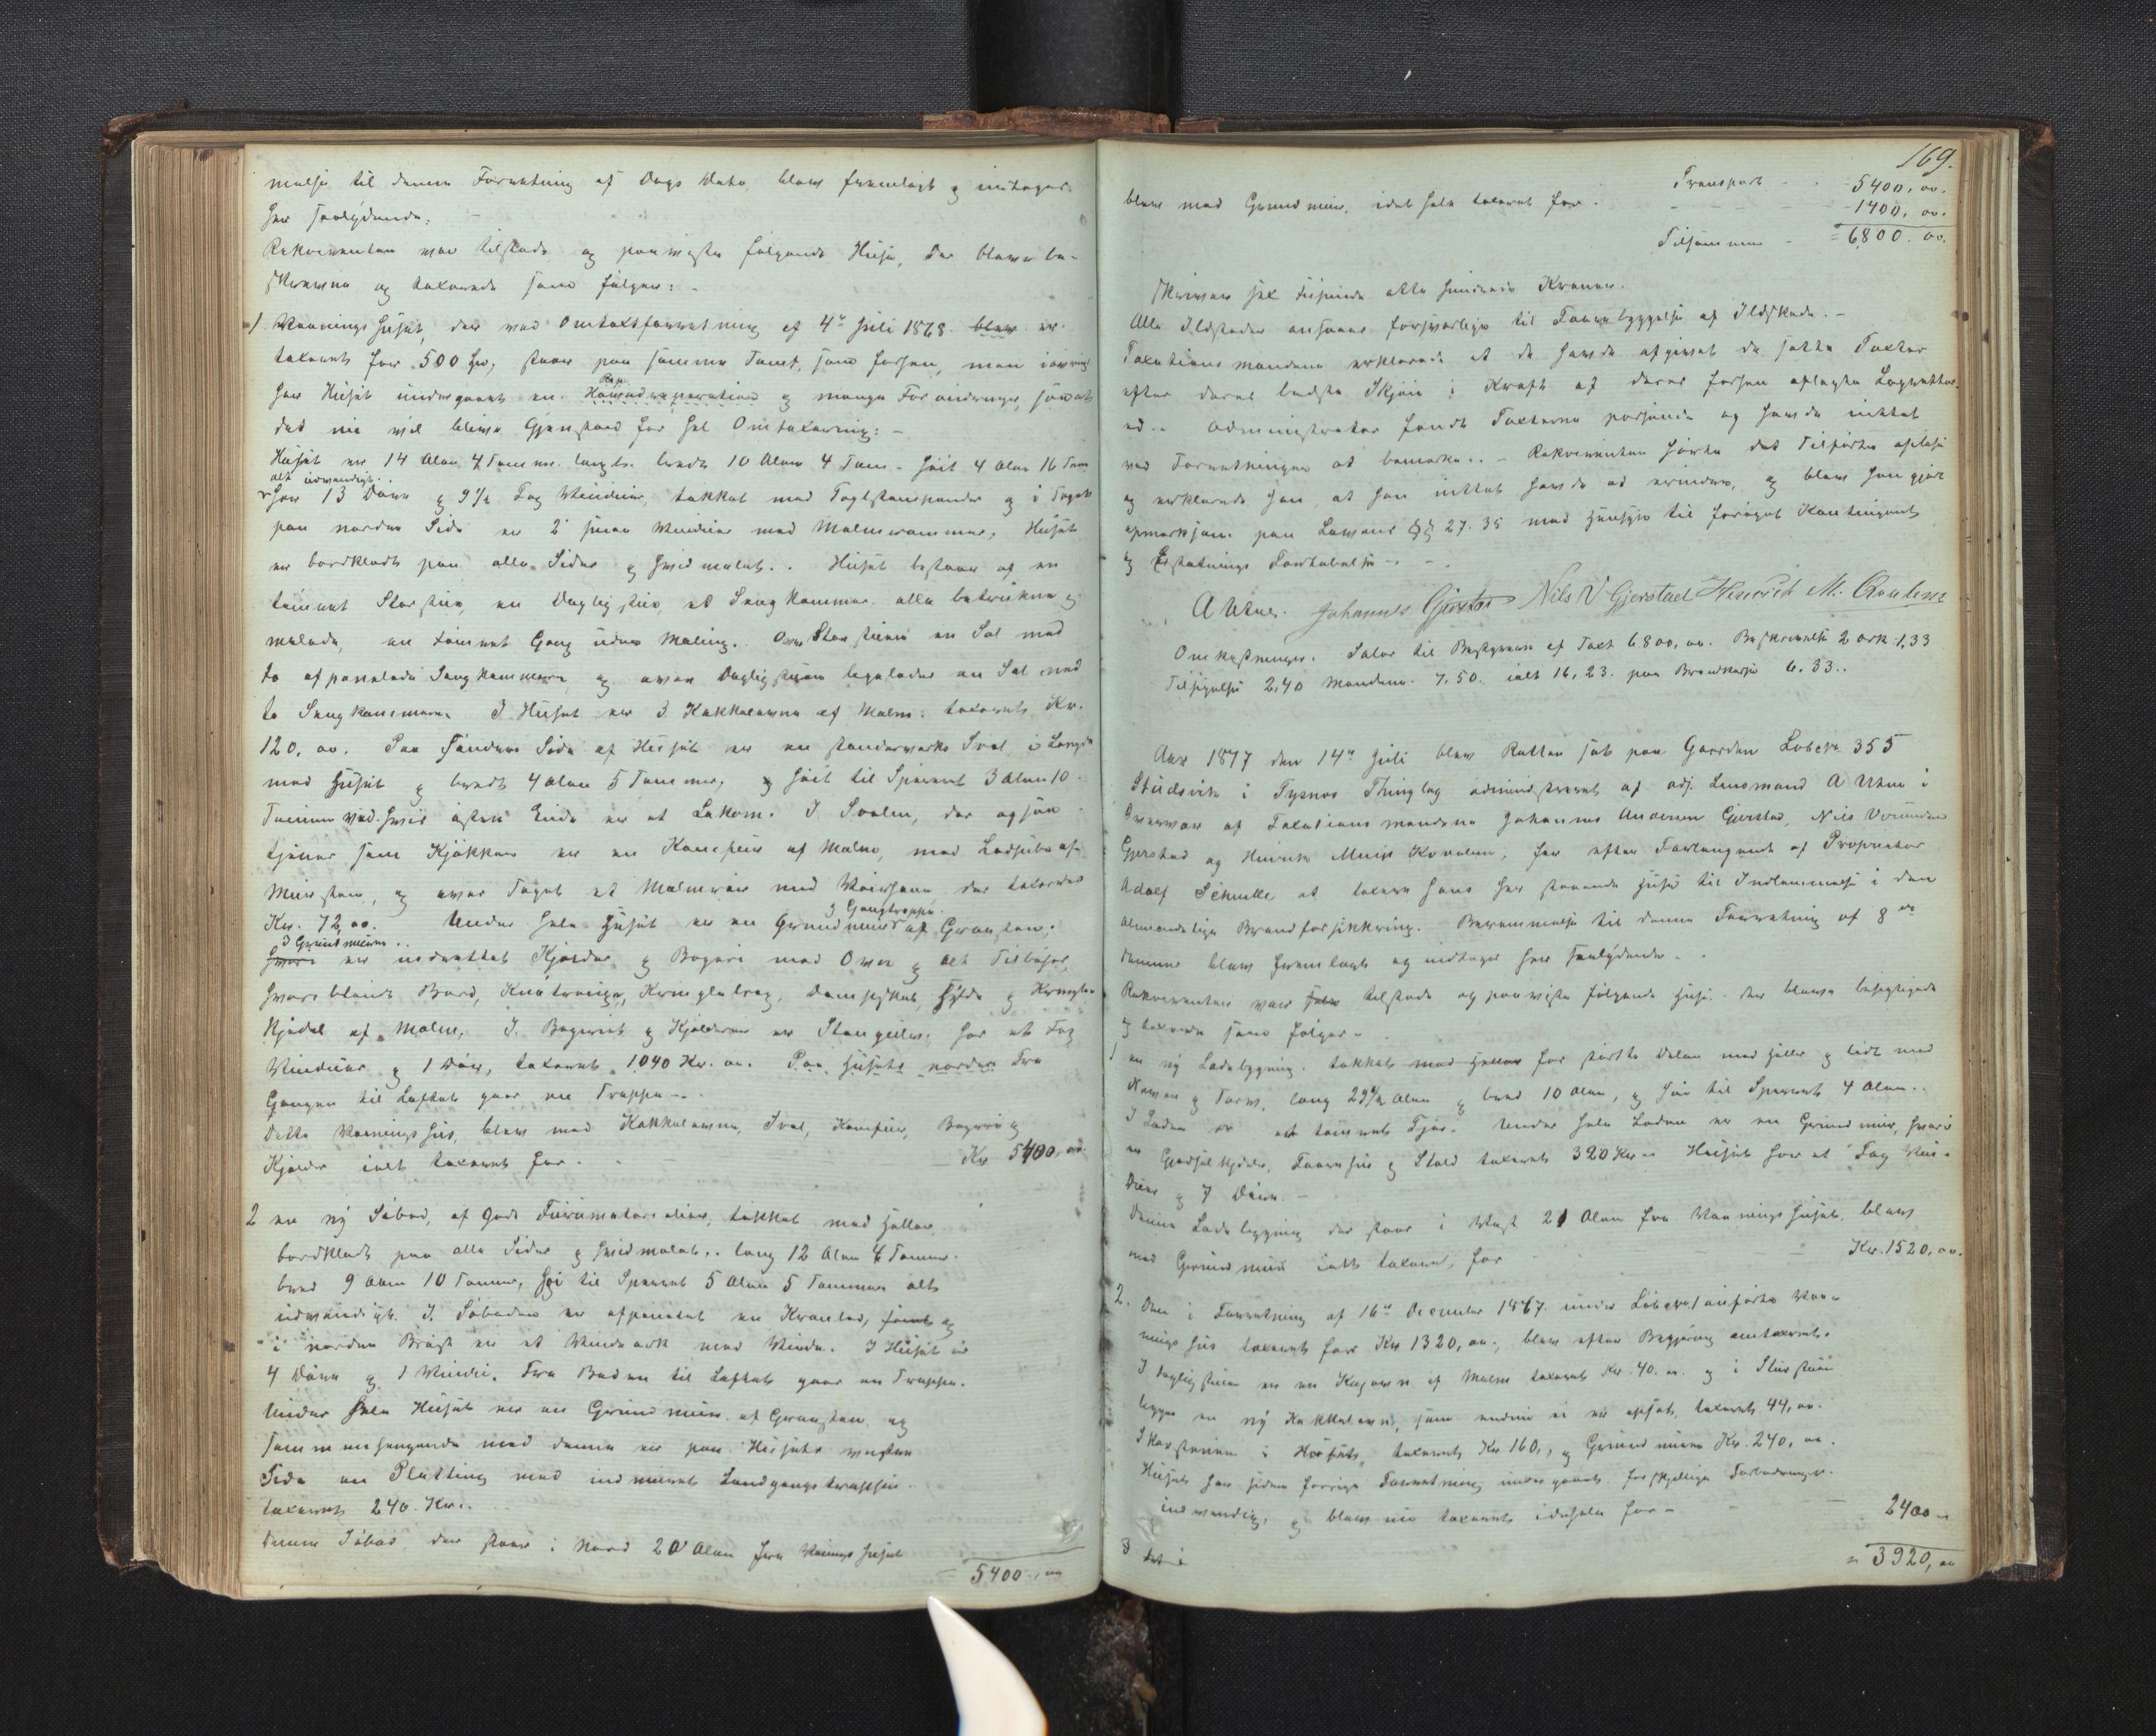 melse til denne Forretning af Dags Dato blev fremlagt og indtages
her saalydende:
Rekvirenten var tilstede og paaviste følgende Huse, der bleve be-
skrevne og taxerede som følger:
1 Vaaningshuset, der ved Omtaxtforretning af 4de Juli 1868 blev er
taxeret for 500 Spd, staar paa samme Tomt, som forhen, men iøvrigt
har Huset undergaaet en Hovedreperation og mange Forandringer, saa at
det nu vil blive Gjenstand for hel Omtaxering:
Huset er 14 Alen 4 Tommer langt, bredt 10 Alen 4 Tom. høit 4 Alen 16 Tom
alt udvendigt.
har 13 Døre og 9½ Fag Vinduer, takket med Taglstenspander og i Taget
paa nordre Side er 2 smaa Vinduer med Malmrammer, Huset
er bordklædt paa alle Sider og hvidmalet. Huset bestaar af en
tømret Storstue, en Daglig stue, et Sengkammer, alle betrukne og
malede, en tømret Gang uden Maling. Over Storstuen en Sal med
to afpanelede Sengkammere, og over Dagligstuen ligeledes en Sal med
to Sengkammere. I Huset er 3 Kakkelovne af Malm, taxeret Kr.
120,00. Paa søndre Side af Huset er en standerverks Sval i Længde
med Huset og bredt 4 Alen 5 Tommer, og høit til Sperret 3 Alen 10
Tommer ved hvis østre Ende er et Lokom. I Svalen, der ogsaa
tjener som Kjøkken er en Komfur af Malm, med Ladpibe af
Mursten, og over Taget et Malmrør med Veirhane der taxeres
Kr. 72,00. Under hele Huset er en Grundmur af Graasten.
3 Gangtrappe.
I Grundmuren
hvori er indrettet Kjelder og Bageri med Oven og alt Tilbehør,
hvoriblandt Bord, Knatrouge, Kringletrog, Dampskab, Hylde og Kringle
kjedel af Malm. I Bageriet og Kjelderen er Stengulv, har et Fag
Vinduer og 1 Dør, taxeret 1040 Kr. 00. Paa Husets nordre Fra
Gangen til Loftet gaar en Trappe.
Dette Vaaningshus, blev med Kakkelovne, Sval, Komfur, Bageri og
Kjelder ialt taxeret for. Kr 5400,00.
2 en ny Søbod, af gode Furumaterialier, takket med Heller
bordklædt paa alle Sider og hvidmalet, lang 12 Alen 6 Tommer
bred 9 Alen 10 Tommer, høi til Sperret 5 Alen 5 Tommer alt
udvendigt. I Søboden er afpanelet en Krambod, samt og
i nordre Brøst er et Vindeverk med Vinde. I Huset er
4 Døre og 1 Vindu. Fra Boden til Loftet gaar en Trappe.
Under hele Huset er en Grundmur af Graasten, og
sammenhengende med denne er paa Husets vestre
Side en Platting med indmuret Landgangstrappe.
taxeret 240 Kr.
Denne Søbod, der staar i Nord 20 Alen fra Vaaningshuset
5400,00
169.
Transport 5400,00.
blev med Grundmur, idet hele taxeret for. 1400,00.
Tilsammen 6,800.00.
skriver sex tusinde otte hundrede Kroner.
Alle Ildsteder ansaaes forsvarlige til Forebyggelse af Ildskade.
Taxationsmændene erklærede at de havde afgivet de satte Taxter
efter deres bedste Skjøn i Kraft af deres forhen aflagte Lagrettes-
ed. Administrator fandt Taxterne passende og havde intet
ved Forretningen at bemærke. Rekvirenten hørte det Tilførte oplæse
og erklærede han, at han intet havde at erindre, og blev han gjort
opmerksom paa Lovens §§ 27. 35 med Hensyn til forøget Kontingent
og Erstatnings Fortabelse.
A Utne. Johannes Gjerstad Nils V Gjerstad Hinrich M. Qvalem
Omkostninger. Salær til Bestyreren af Taxt 6800,00. Beskrivelse 2 Ark 1,33
Tilsigelse 2,40 Mændene 7,50. ialt 16,23. paa Brandkasse 6.33.
Aar 1877 den 14de Juli blev Retten sat paa Gaarden Løbe№ 355
Studsvik i Tysnes Thinglag administreret af adj. Lensmand A Utne i
Overvær af Taxationsmændene Johannes Andersen Gjerstad, Nils
Gjerstad og Hinrik Kovalem, for efter Forlangende af Proprietær
Adolf Schnelle at taxere hans her staaende Huse til Indlemmelse i den
almindelige Brandforsikkring. Berammelse til denne Forretning af 8de
denne blev fremlagt og indtages her saalydende.
Rekvirenten var selv tilstede og paaviste følgende Huse, der bleve besigtigede
og taxerede som følger.
1 en ny Ladebygning, takket med Heller for største Delen med Heller og lidt med
Næver og Torv, lang 29½ Alen og bred 10 Alen, og høi til Sperret 4 Alen.
I Laden er et tømret Fjøs. Under hele Laden er en Grundmur, hvori
er Gjødselkjelder, Faarehus og Stald taxeret 320 Kr. Huset har et Fag Vin-
duer og 7 Døre.
Denne Ladebygning der staar i Vest 21 Alen fra Vaaningshuset, blev
med Grundmur ialt taxeret, for Kr. 1520,00.
2. Den i Forretning af 16de December 1867 under Løbe№ 1 anførte Vaa-
ningshus taxeret for Kr 1320,00, blev efter Begjæring omtaxeret.
I Dagligstuen er en Kogeovn af Malm taxeret Kr. 40.00. og i Storstuen
ligger en ny Kakkelovn, som endnu ei er opsat, taxeret 44,00.
Skorstenen i Kr. 160, og Grundmuren Kr. 240,00.
Huset har siden forrige Forretning undergaaet forskjellige Forbedringer
indvendig, og blev nu taxeret idethele for 2400
3 det i 3920,00